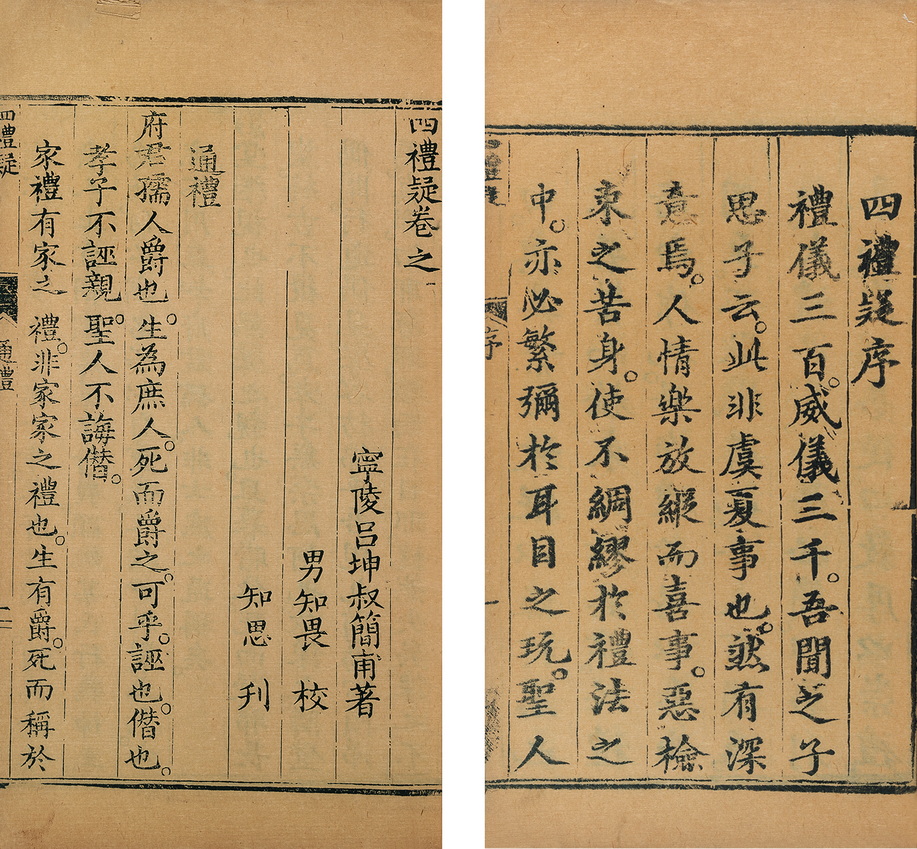 四禮疑序
禮儀三百。威儀三千。吾聞之子
思子云。此非虞夏事也。然有深
意焉。人情樂放縱而喜事。惡檢
束之苦身。使不綢繆於禮法之
中。亦必繁彌於耳目之玩。聖人
序
四禮疑卷之一
寧陵呂坤叔簡甫著
男知畏 校
知思 刋
通禮
府君孺人爵也。生為庶人。死而爵之。可乎。誣也。僭也。
孝子不誣親。聖人不誨僭。
家禮有家之禮。非家家之禮也。生有爵。死而稱於
四禮疑
通禮
一